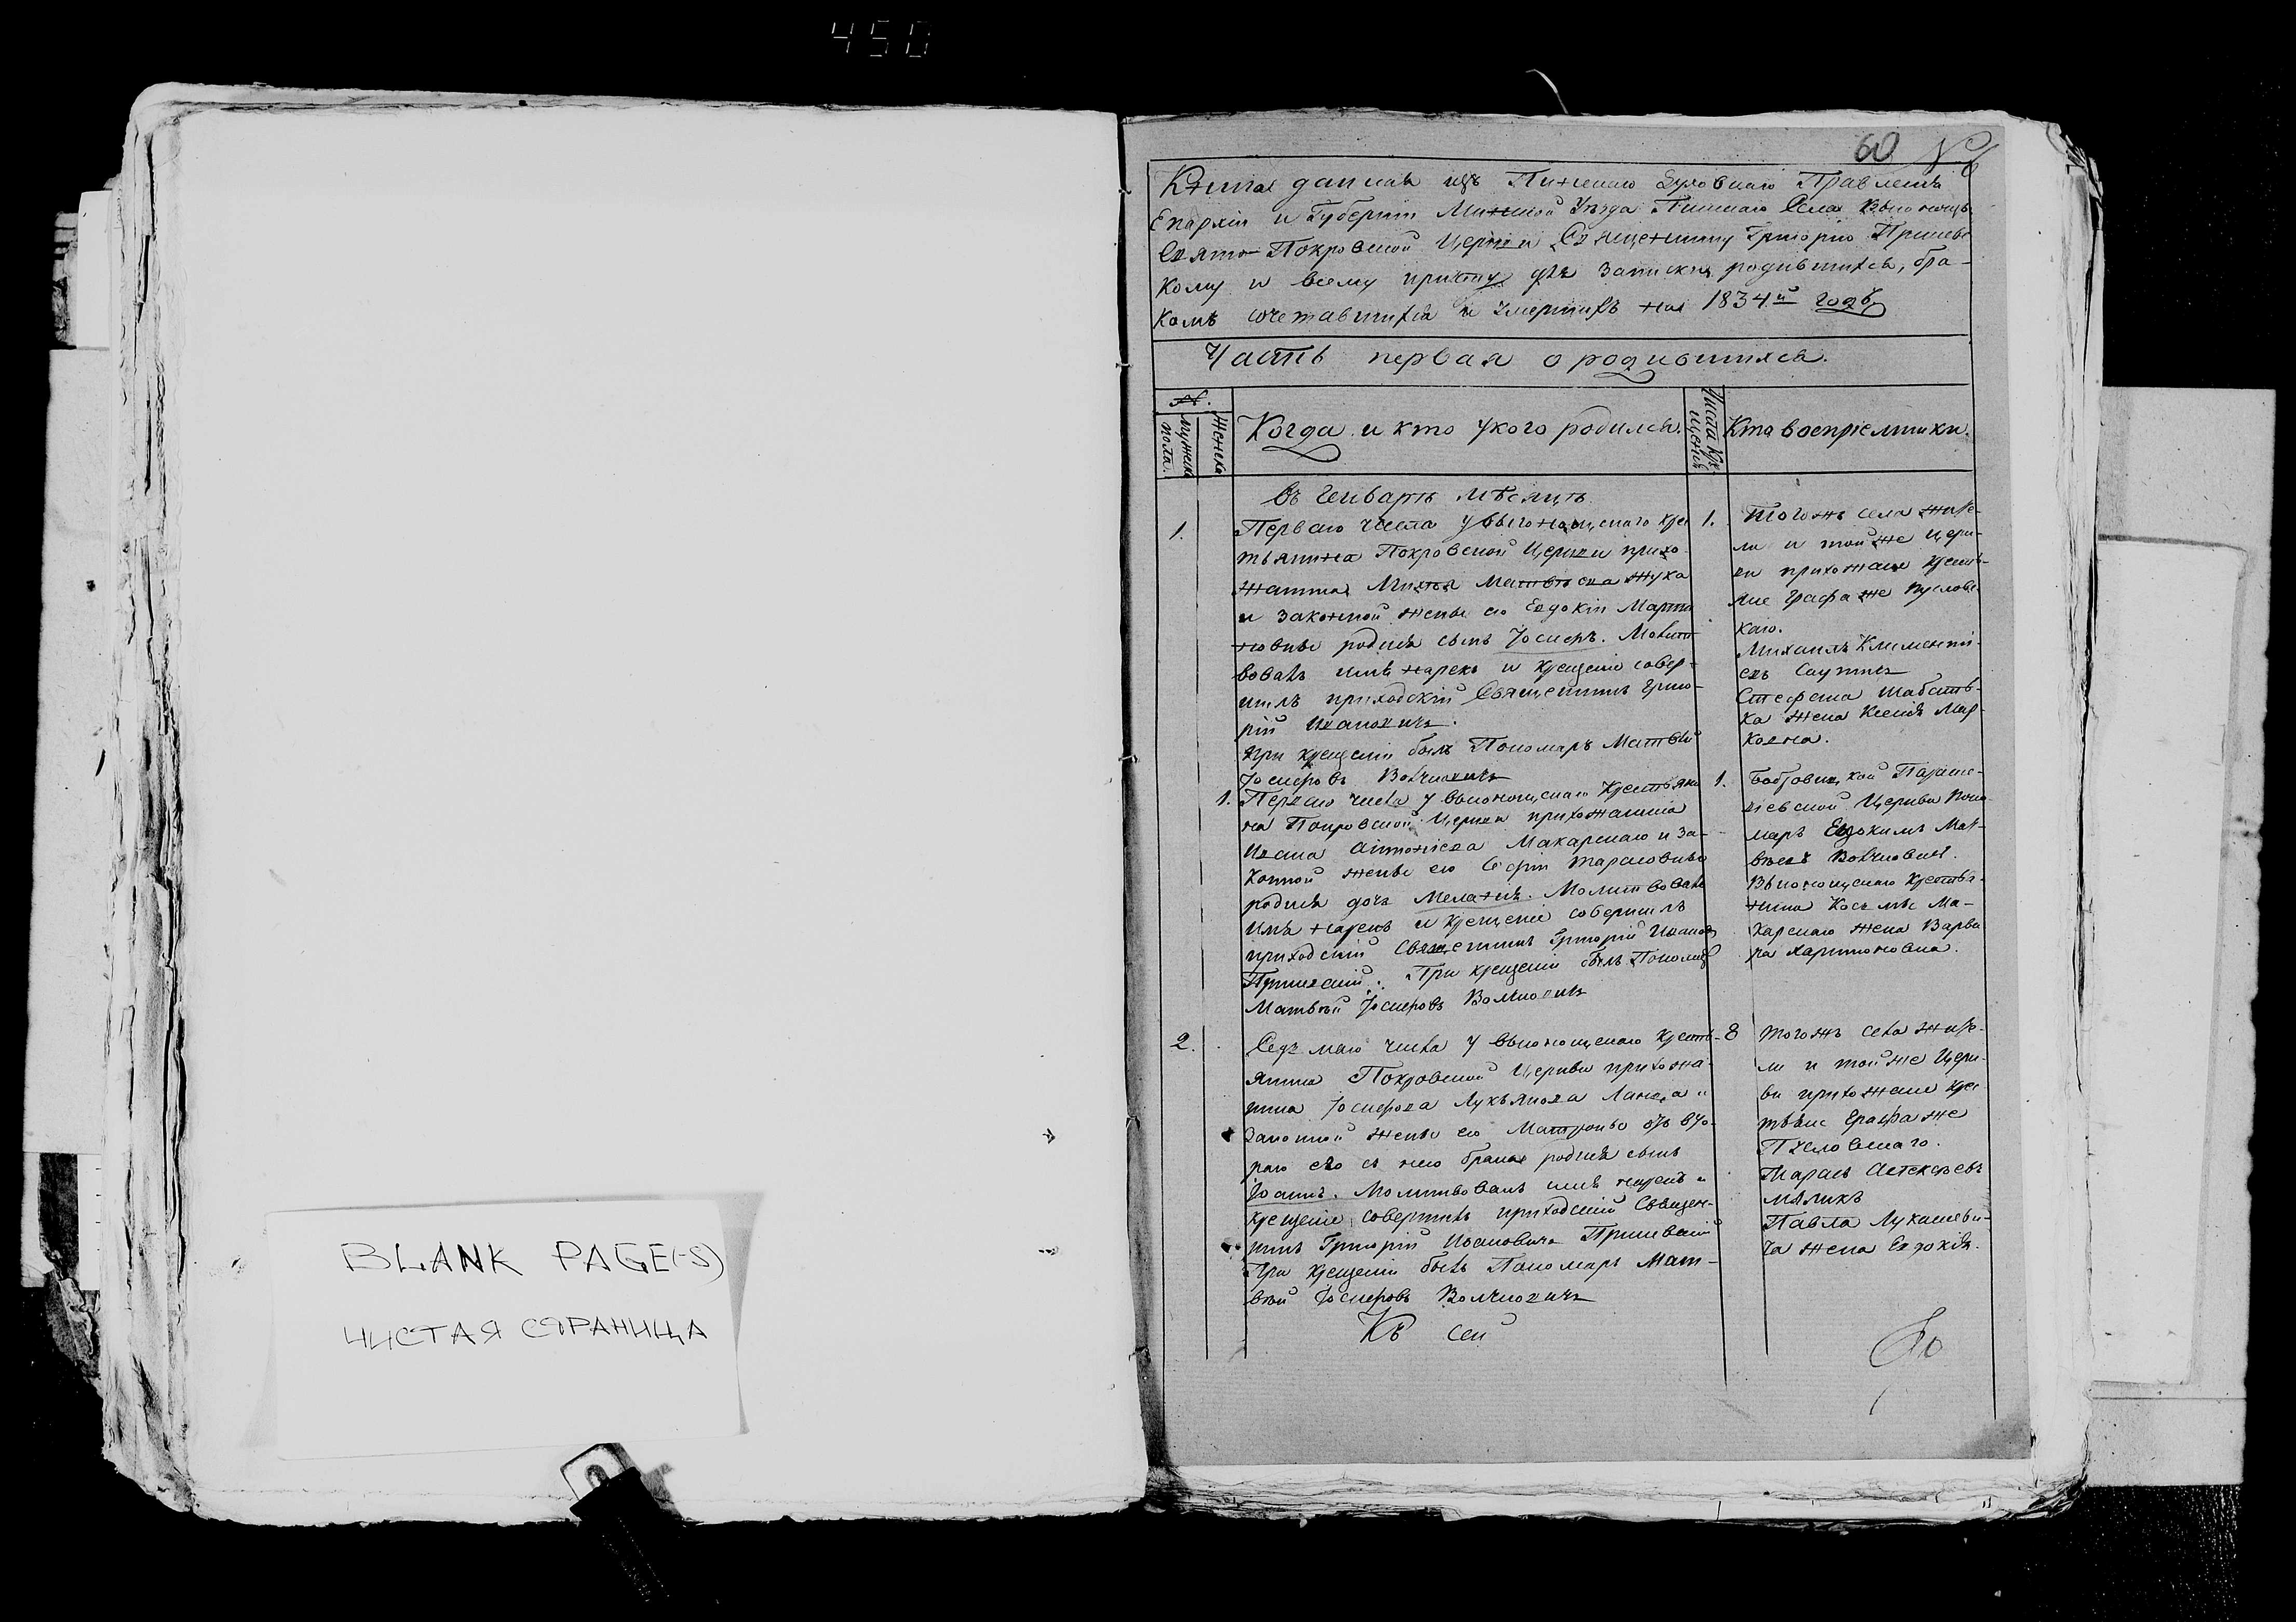 450
60
Книга данная изъ Пинскаго Духовнаго Правленія
Епархіи и Губерніи Минской Уѣзда Пинскаго Села Выгонощъ
Свято Покровской Церкви Священнику Григорію
кому и всему причту для записки родившихся, бра-
комъ сочетавшихся и умершихъ на 1834й годъ
Часть первая о родившихся.
№.
Мужеска
пола.
Женска
Когда и кто у кого родился.
Числа кре-
щенія
Кто воспріемники.
Въ Генварѣ мѣсяцѣ
1.
Перваго числа у Выгонощскаго крес
тьянина Покровской Церкви прихо-
жанина Матвѣева Жука
и законной жены его Евдокіи Марти
новны родился сынъ Іосифъ. Молит
вовалъ имя нарекъ и крещеніе совер-
шилъ приходскій Священникъ Григо-
рій Ивановичъ.
При крещеніи былъ Пономарь Матвѣй
Іосифовъ
1.
Тогожъ села жите-
ли и той же церк-
ви прихожане крестья-
не Графа же Пуслов-
скаго.
Михаилъ Клименті-
евъ
Стефана
ка жена Ксенія Мар-
ковна.
1.
Перваго числа у Выгонощскаго крестьяни
на Покровской Церкви прихожанина
Ивана Антоніева Макарскаго и за-
конной жены его Софіи Тарасовны
родилась дочь Меланія. Молитвовалъ
имя нарекъ и крещеніе совершилъ
приходскій Священникъ Григорій Иванов
При крещеніи былъ Пономарь
Матвѣй Іосифовъ
1.
Бобровицкой Параске-
віевской Церкви Поно-
марь Евдокимъ Мат-
вѣевъ
Выгонощскаго крестья-
нина Косьмы Ма-
карскаго жена Варва
ра Харитоновна.
2.
Седьмаго числа у Выгонощскаго кресть-
янина Покровской Церкви прихожа-
нина Іосифова Лукьянова и
законной жены его Матроны отъ вто-
раго его съ нею брака родился сынъ
Іоаннъ. Молитвовалъ имя нарекъ и
крещеніе совершилъ приходскій Священ-
никъ Григорій Ивановичъ
При крещеніи былъ Пономарь Мат-
вѣй Іосифовъ
8
Тогожъ села жите-
ли и той же Церк-
ви прихожане крес
тьяне Графа же
Пусловскаго.
Тарасъ Алексѣевъ
Павла Лукашеви-
ча жена Евдокія.
Къ сей
BLANK PAGE(-S)
ЧИСТАЯ СТРАНИЦА